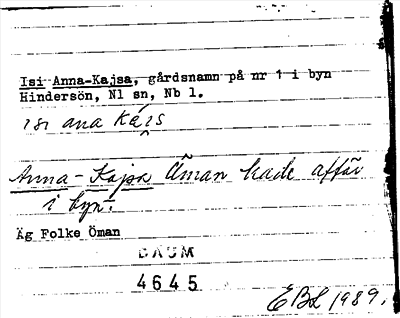 Isi Anna-Kajsa, gårdsnamn på nr 1 i byn
Hindersön, Nl sn, Nb l.
isi ana kàis
Anna-Kajsa Öman hade affär
i byn.
Äg Folke Öman
DAUM
4645
EBL 1989.